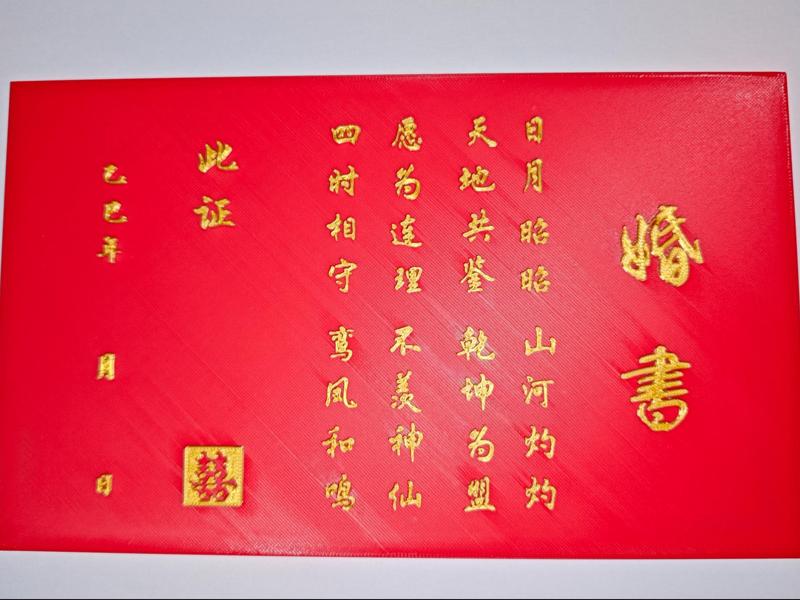 婚書
日月昭昭 山河灼灼
天地共鉴 乾坤为盟
愿为连理 不羡神仙
四时相守 鸾凤和鸣
此证
囍
己巳年 月 日